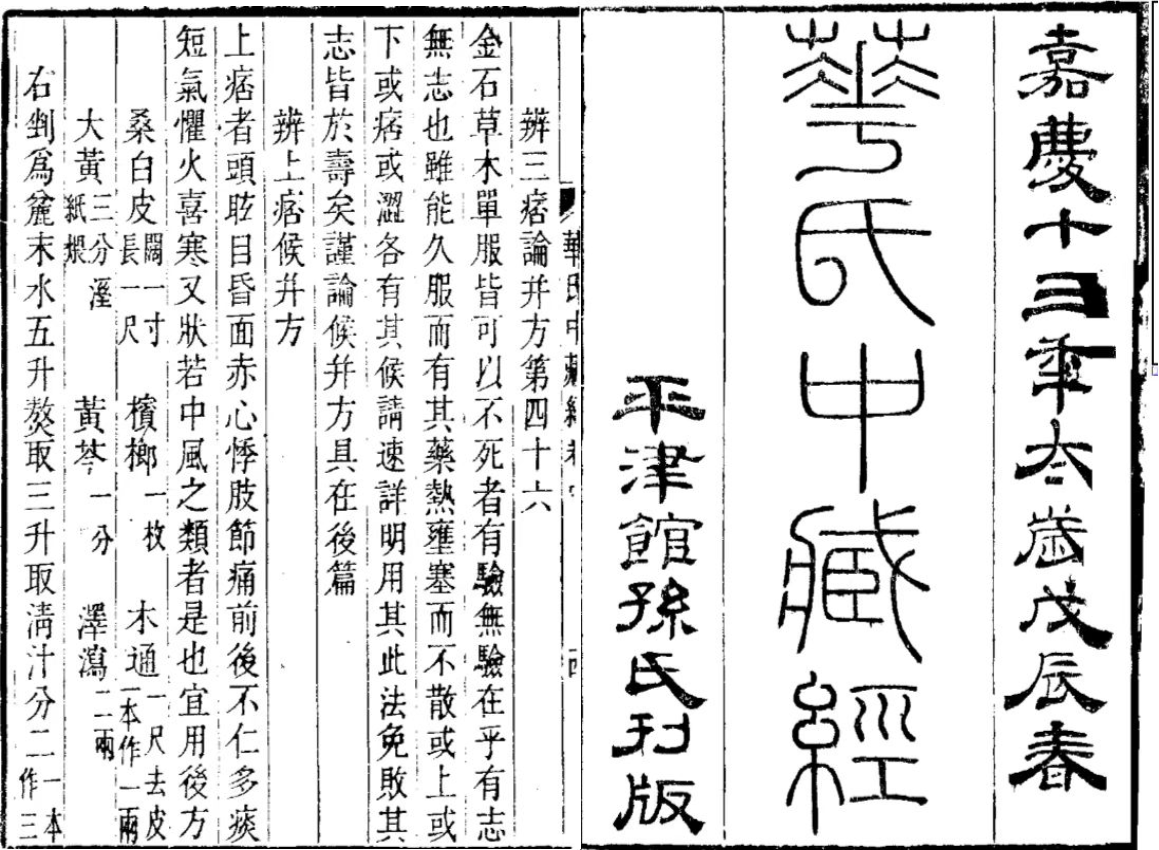 嘉慶十三秊太歲戊辰春
華氏中藏經
平津館孫氏刊版
華氏中藏經卷
辨三痞論并方第四十六
金石草木單服皆可以不死者有驗無驗在乎有志
無志也雖能久服而有其藥熱壅塞而不散或上或
下或痞或澀各有其候請速詳明用其此法免敗其
志皆於壽矣謹論候并方具在後篇
辨上痞候并方
上痞者頭眩目昏面赤心悸肢節痛前後不仁多痰
短氣懼火喜寒又狀若中風之類者是也宜用後方
桑白皮闊一寸長一尺 檳榔一枚 木通一尺去皮一本作一兩
大黃三分溼紙煨 黃芩一分 澤瀉二兩
右剉為麄末水五升熬取三升取清汁分二一本作三